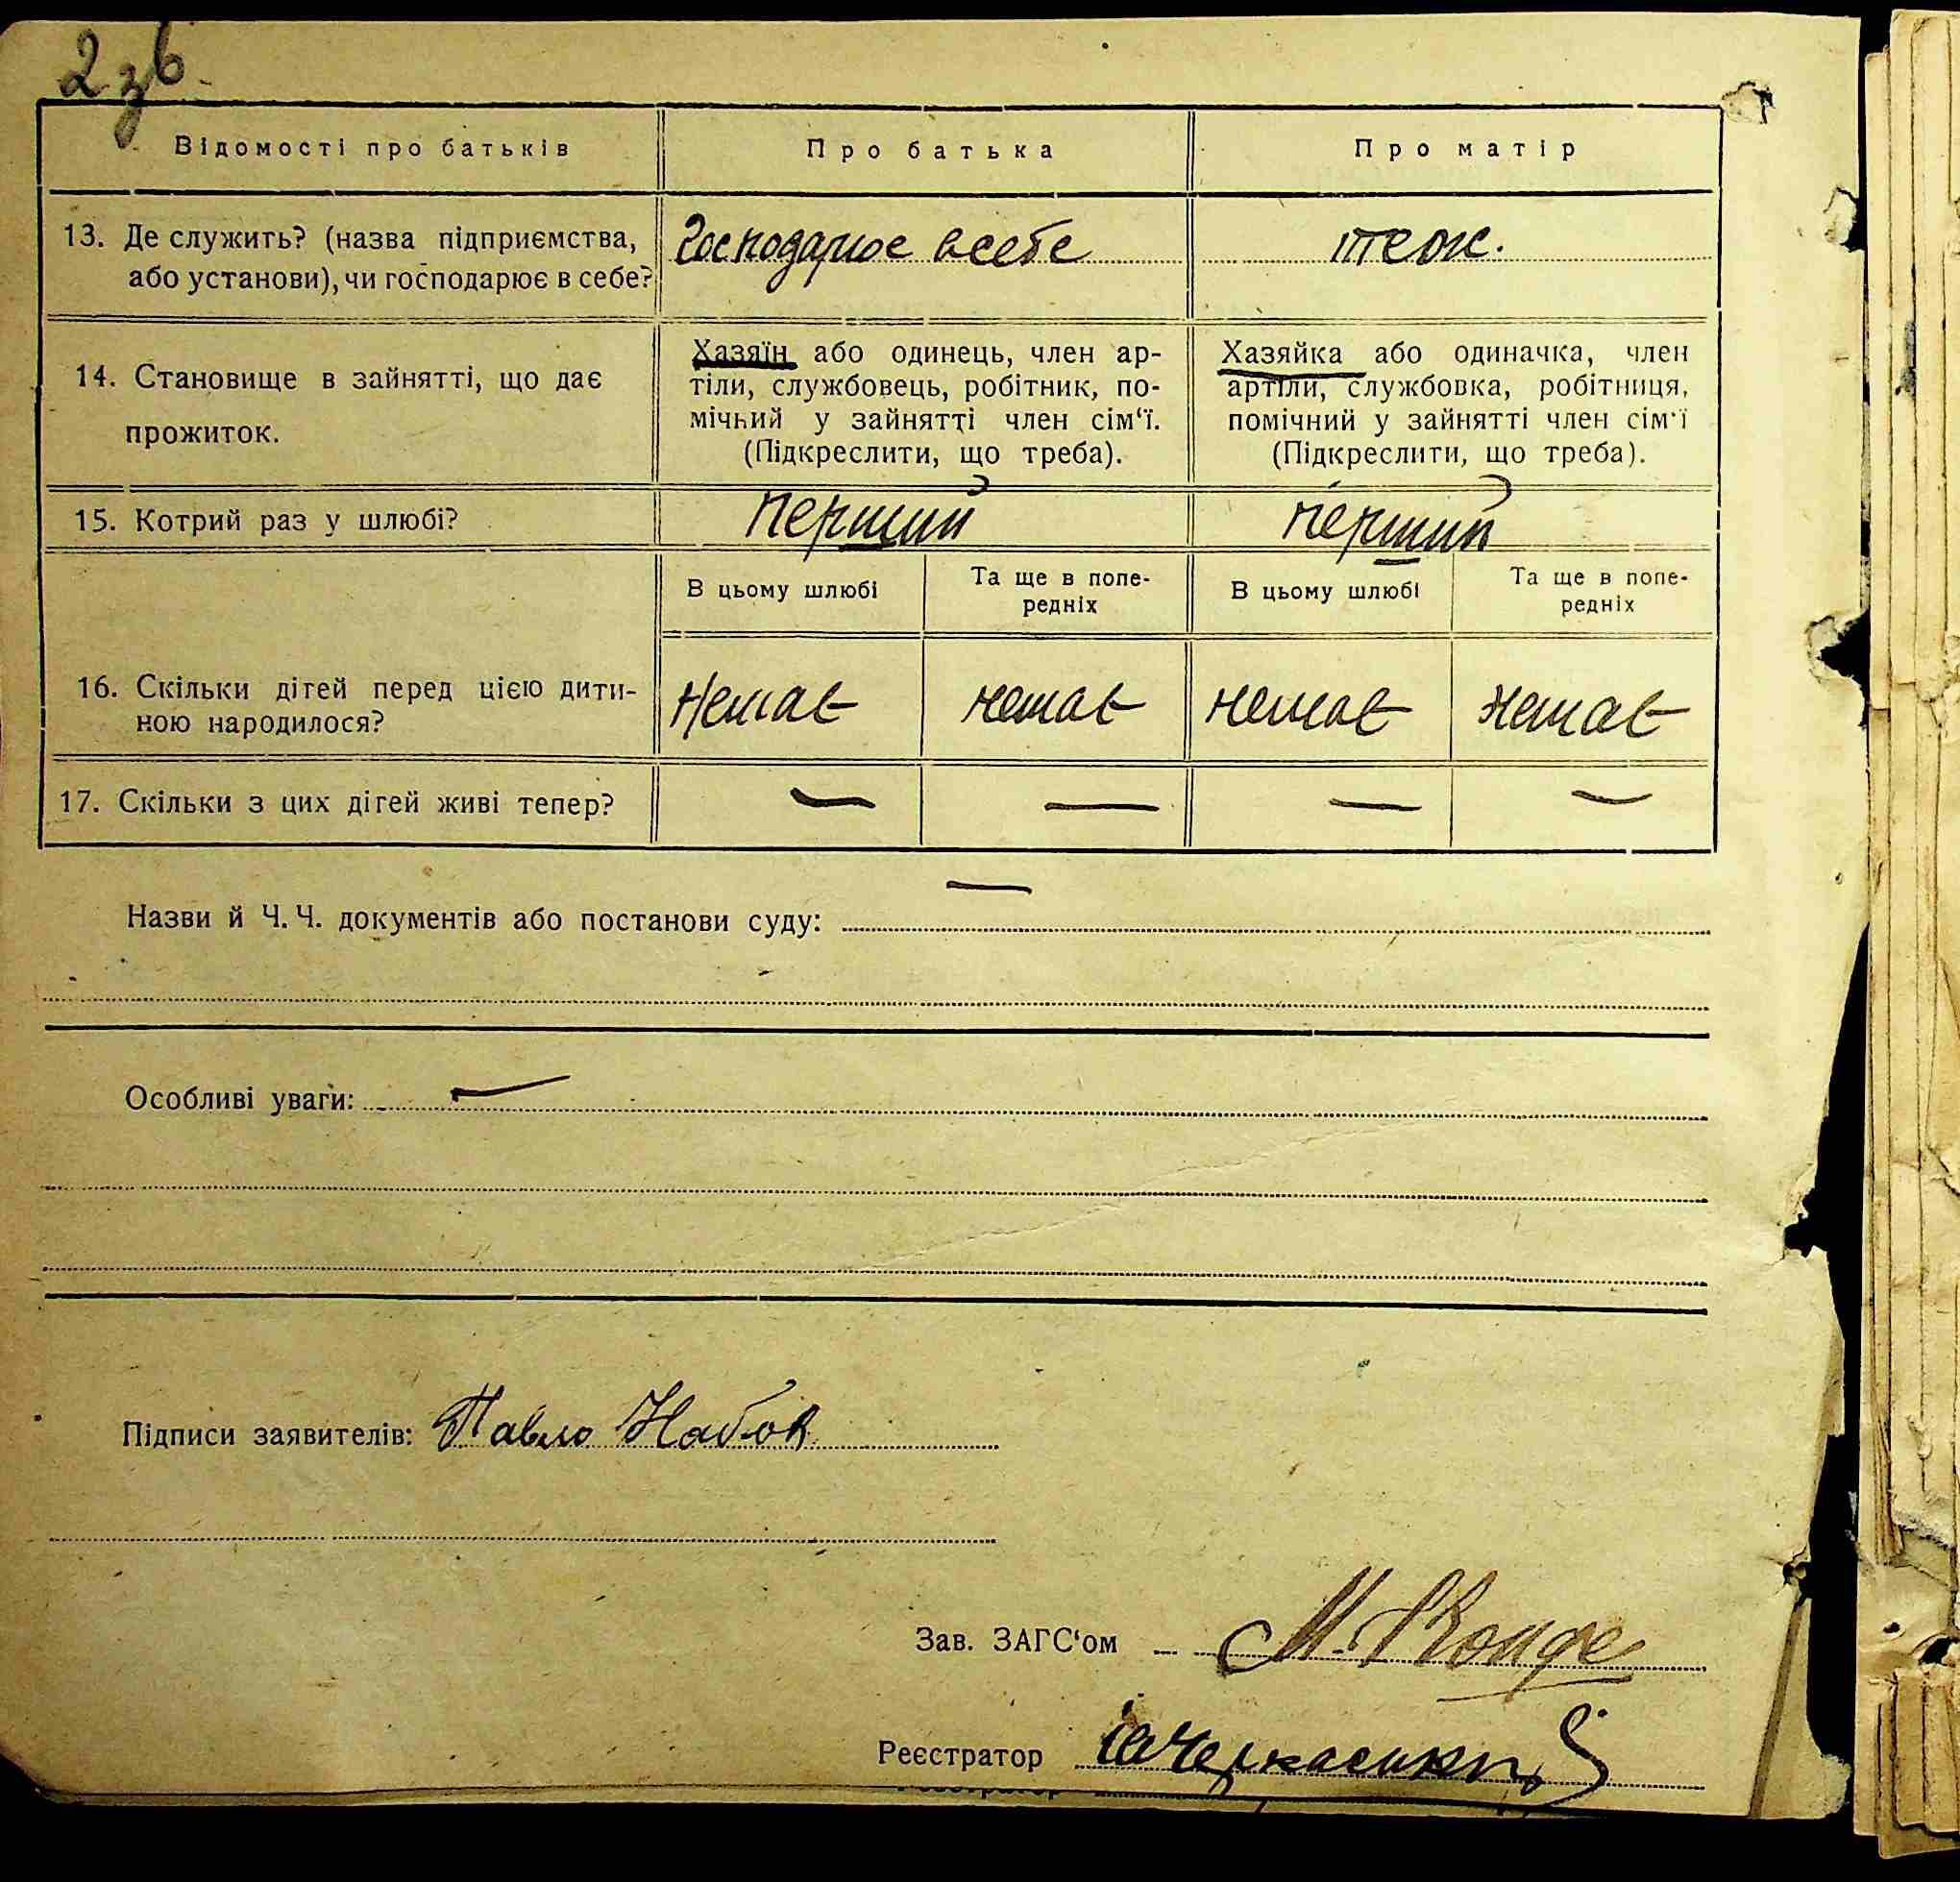 2зв.
Відомості про батьків
Про батька
Про матір
13. Де служить? (назва підприємства,
або установи), чи господарює в себе?
Господарює всебе
теж.
14. Становище в зайнятті, що дає
прожиток.
Хазяїн або одинець, член ар-
тіли, службовець, робітник, по-
мічний у зайнятті член сім‘ї.
(Підкреслити, що треба).
Хазяйка або одиначка, член
артіли, службовка, робітниця,
помічний у зайнятті член сім‘ї
(Підкреслити, що треба).
15. Котрий раз у шлюбі?
перший
перший
В цьому шлюбі
Та ще в попе-
редніх
В цьому шлюбі
Та ще в попе-
редніх
16. Скільки дітей перед цією дити-
ною народилося?
Немає
немає
немає
немає
17. Скільки з цих дітей живі тепер?
—
—
—
—
Назви й Ч. Ч. документів або постанови суду: —
Особливі уваги: —
Підписи заявителів: Павло Набок
Зав. ЗАГС‘ом М.
Реєстратор Черкаський